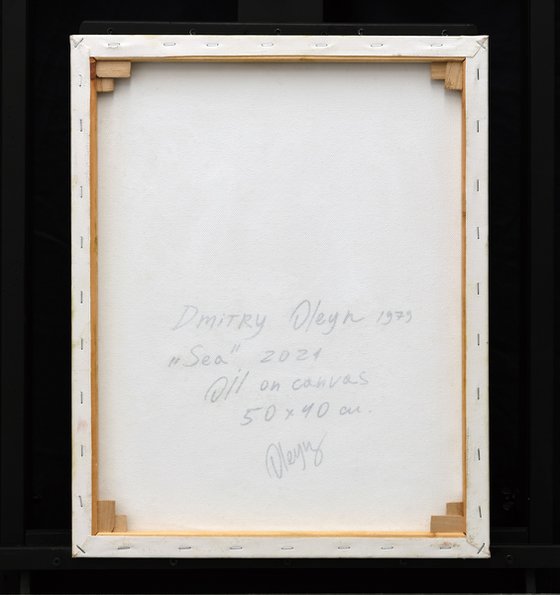 Dmitry Oleyn 1979
„Sea" 2021
Oil on canvas
50x40 cm.
Oleyn